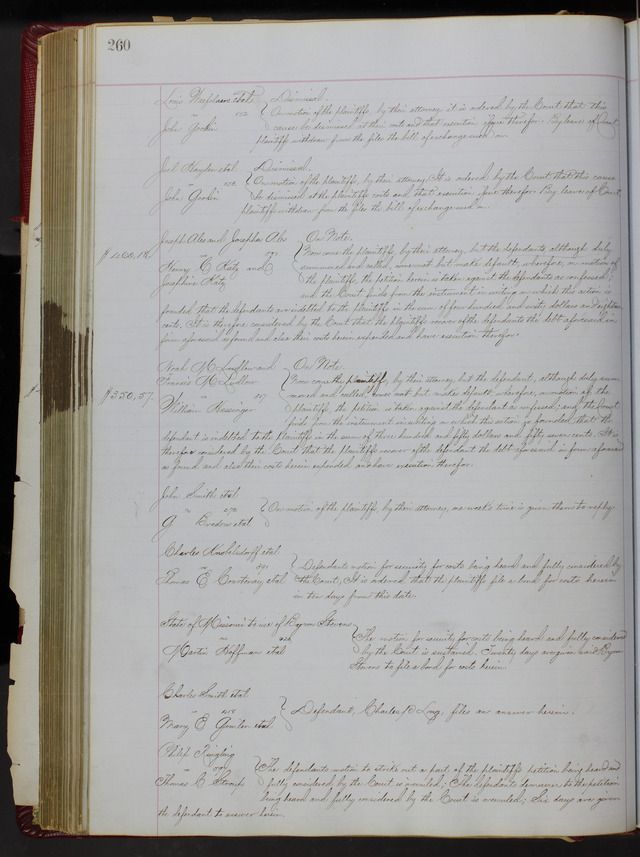 260
Louis et al Dismissed.
vs On motion of the plaintiffs, by their attorney it is ordered by the Court that this
John cause be dismissed at their costs and that execution issue therefor. By leave of Court
plaintiffs withdraw from the files the bill of exchange sued on.
Joel et al Dismissed.
vs On motion of the plaintiffs, by their attorney, It is ordered by the Court that this cause
John be dismissed at the plaintiffs costs and that execution issue therefor. By leave of Court,
plaintiffs withdraw from the files the bill of exchange sued on.
Joseph and On Note.
vs Now come the plaintiffs, by their attorney, but the defendants although duly
Henry C and summoned and called, come not but make default; wherefore, on motion of
Josephine the plaintiffs, the petition herein is taken against the defendants as confessed;
and the Court finds from the instrument in writing on which this action is
founded that the defendants are indebted to the plaintiffs in the sum of four hundred and dollars and eighteen
cents. It is therefore considered by the Court that the plaintiffs recover of the defendants the debt aforesaid in
form aforesaid as found and also their costs herein expended and have execution therefor.
Noah M Ludlow and On Note
Francis M Ludlow Now come the plaintiffs, by their attorney, but the defendant, although duly sum-
$350,57. vs moned and called, comes not but makes default, wherefore, on motion of the
William plaintiffs, the petition is taken against the defendant as confessed; and the Court
finds from the instrument in writing on which this action is founded that the
defendant is indebted to the plaintiffs in the sum of three hundred and fifty dollars and fifty seven cents. It is
therefore considered by the Court that the plaintiffs recover of the defendant the debt aforesaid in form aforesaid
as found and also their costs herein expended and have execution therefor.
John Smith et al
vs On motion of the plaintiffs, by their attorney, one weeks time is given them to reply.
G et al
Charles et al
vs Defendants motion for security for costs being heard and fully considered by
Thomas E Courtenay et al the Court, It is ordered that the plaintiffs file a bond for costs herein
in ten days from this date.
State of Missouri to use of Byron Stevens
vs The motion for security for costs being heard and fully considered
Martin Hoffman et al by the Court is sustained. Twenty days are given said Byron
Stevens to file a bond for costs herein.
Charles Smith et al
vs Defendant, Charles files an answer herein.
Mary E et al
Philip
vs The defendants motion to strike out a part of the plaintiffs petition being heard and
Thomas C fully considered by the Court is overruled; The defendants demurrer to the petition
being heard and fully considered by the Court is overruled; Six days are given
the defendant to answer herein.